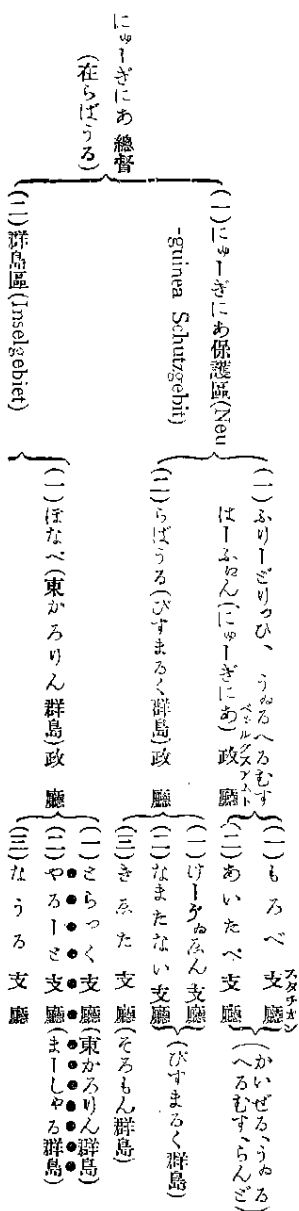 にゅーぎにあ總督
(在らばうる)
(一)にゅーぎにあ保護區(Neu
-guinea Schutzgebit)
(二)群島區(Inselgebiet)
(一)ふりーどりつひ、うゐるへるむす
はーふゑん(にゅーぎにあ)政廳
ベツルグスアムト
(二)らばうる(びすまるく群島)政廳
(一)ぽなペ(東かろりん群島)政廳
(一)もろべ支廳
スタチオン
(二)あいたぺ支廳
(かいぜる、うゐる
へるむす、らんど)
(一)けーゔゐゑん支廳
(二)なまたない支廳
(びすまるく群島)
(三)きゑた支廳(そろもん群島)
(一)とらつく支廳(東かろりん群島)
(二)やるーと支廳(まーしゃる群島)
(三)なうる支廳